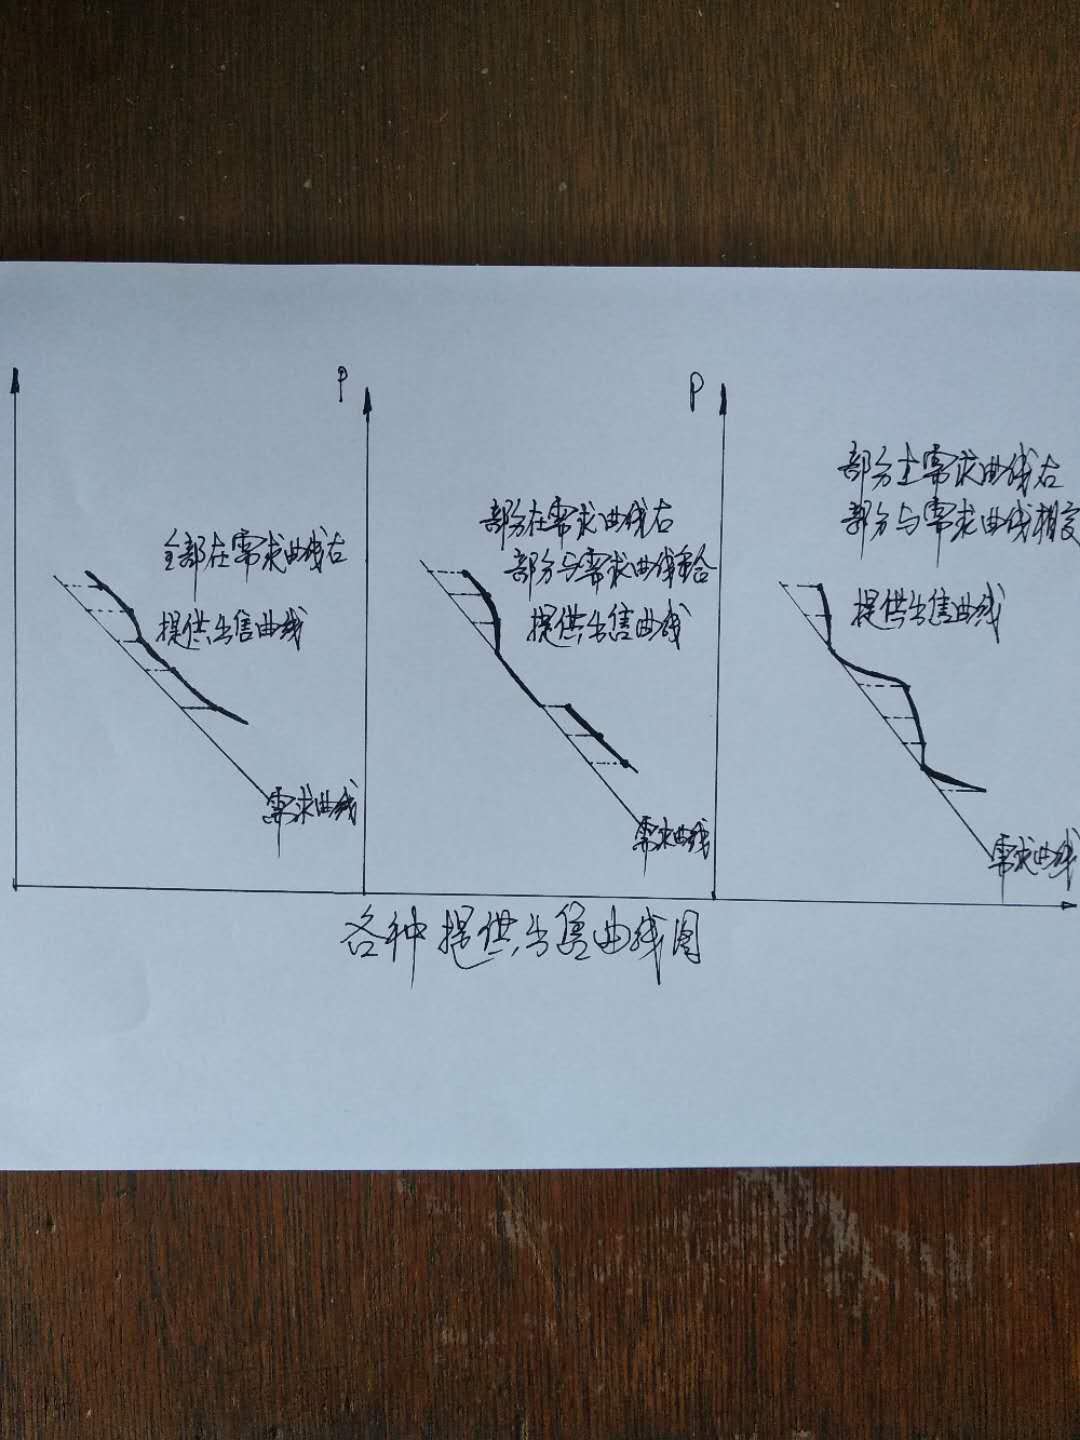 P
P
全部在需求曲线右
提供出售曲线
需求曲线
部分在需求曲线右
部分与需求曲线重合
提供出售曲线
需求曲线
部分在需求曲线右
部分与需求曲线相交
提供出售曲线
需求曲线
各种提供出售曲线图